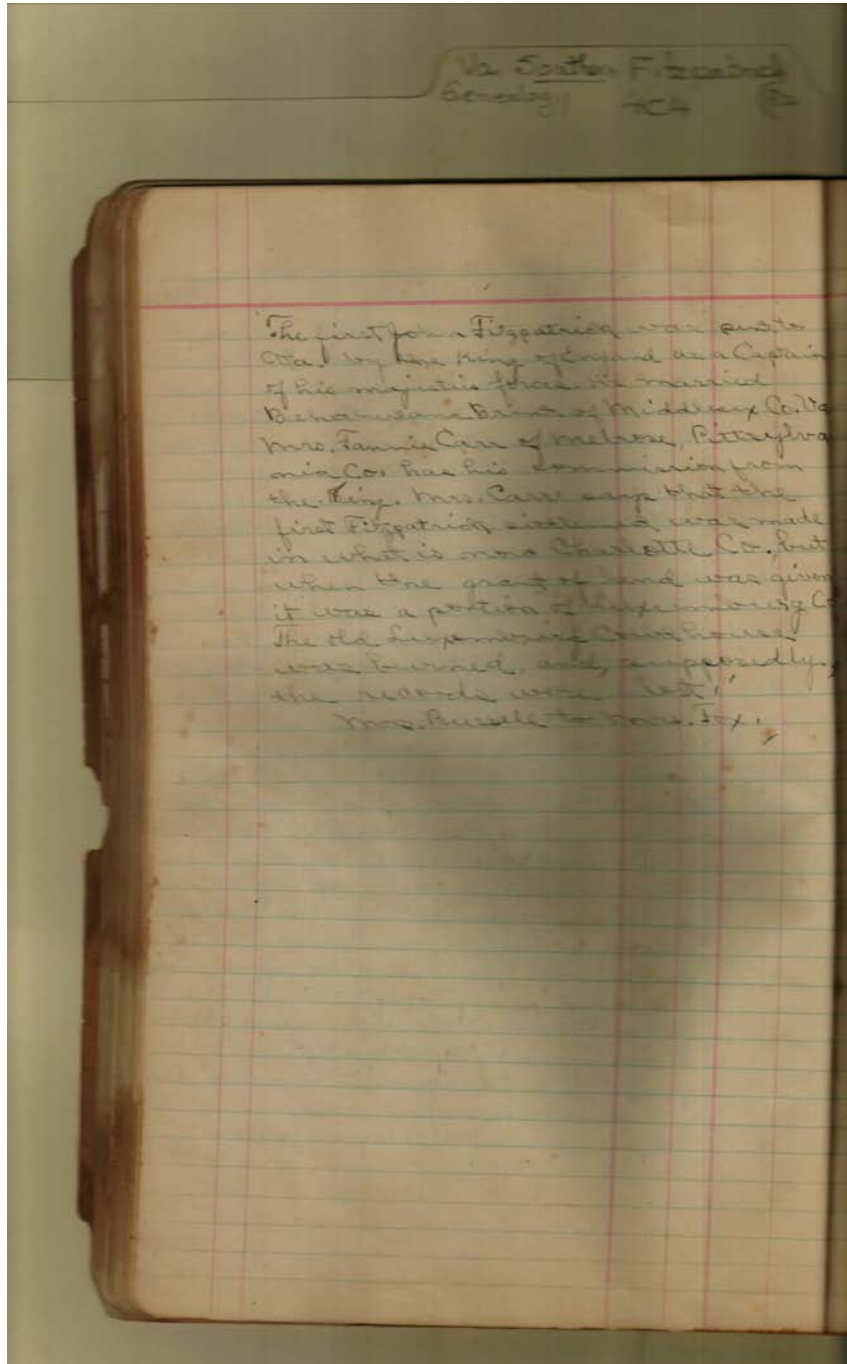 Va Southern Fitzpatrick
Genealogy 4C4
The first John Fitzpatrick was sent to
Va. by the King of England as a Captain
of his majesties forces. He married
Brint of Middlesex Co. Va
Mrs. Fannie Carr of Melrose, Pittsylva
nia Co. has his commission from
the King. Mrs. Carr says that the
first Fitzpatrick was made
in what is now Charlotte Co. but
when the grant of land was given
it was a portion of Luxemburg Co
The old Luxemburg Courthouse
was burned, and, supposedly,
the records were lost."
Mrs. Russell to Mrs. Fox.